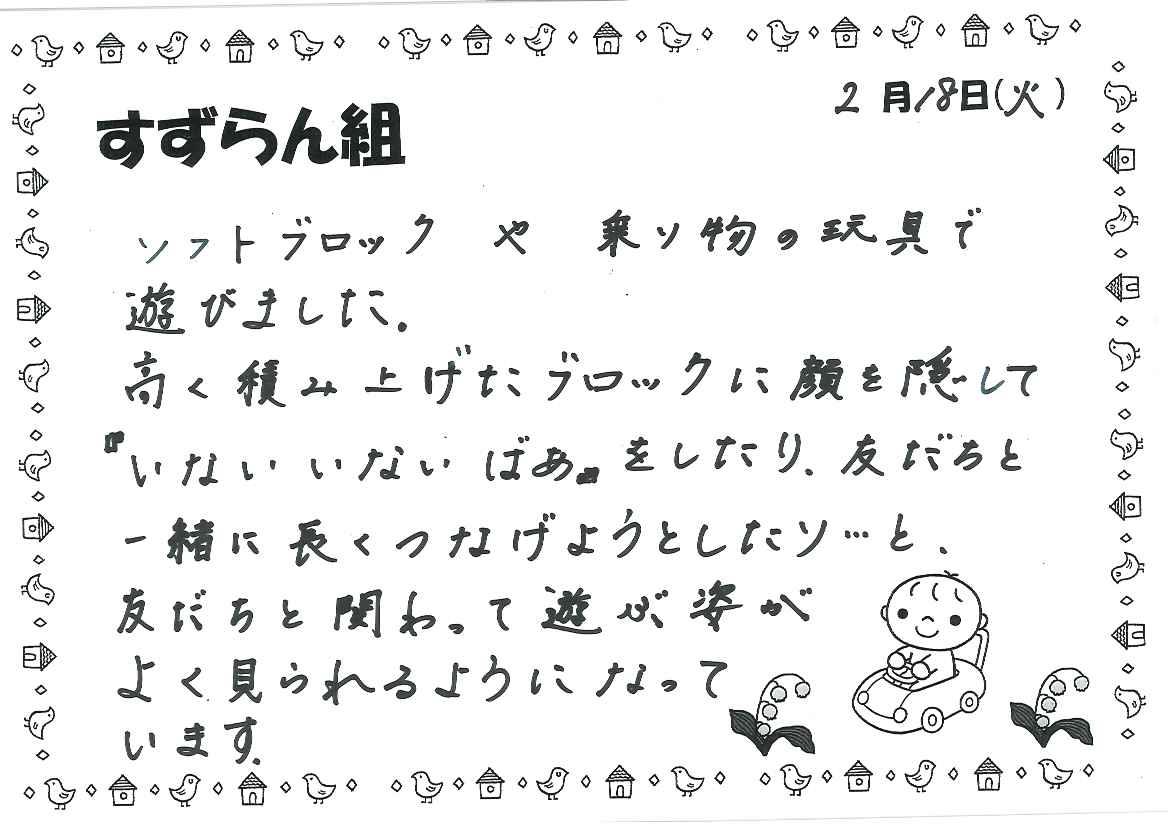 2月18日(火)
すずらん組
ソフトブロックや乗り物の玩具で
遊びました。
高く積み上げたブロックに顔を隠して
『いないいないばあ』をしたり、友だちと
一緒に長くつなげようとしたリ…と、
友だちと関わって遊ぶ姿が
よく見られるようになって
います。